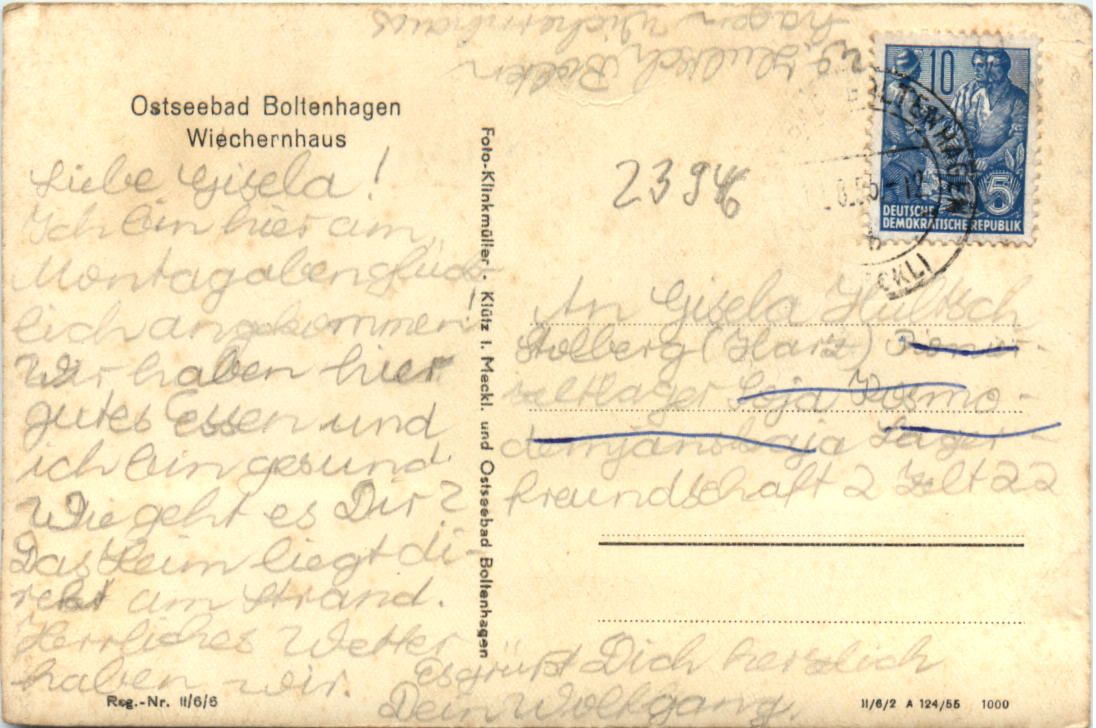 Ostseebad Boltenhagen
Wiechernhaus
Liebe Gisela!
Ich bin hier am
Montagabenglück-
lich angekommen!
Wir haben hier
gutes Essen und
ich bin gesund.
Wie geht es Dir?
Das Heim liegt di-
rekt am Strand.
Herrliches Wetter
haben wir.
Es grüßt Dich herzlich
Dein Wolfgang.
Reg.-Nr. II/6/6
Foto-Klinkmüller · Klütz i. Meckl. und Ostseebad Boltenhagen
Hültsch Bolten
hagen Wichernhaus
2394
10
5
DEUTSCHE
DEMOKRATISCHE REPUBLIK
BOLTENHAGEN
An Gisela Hültsch
Stolberg (Harz) Pionier-
zeltlager Soja Kosmo-
demjanskaja Lager
Freundschaft 2 Zelt 22
II/6/2 A 124/55 1000